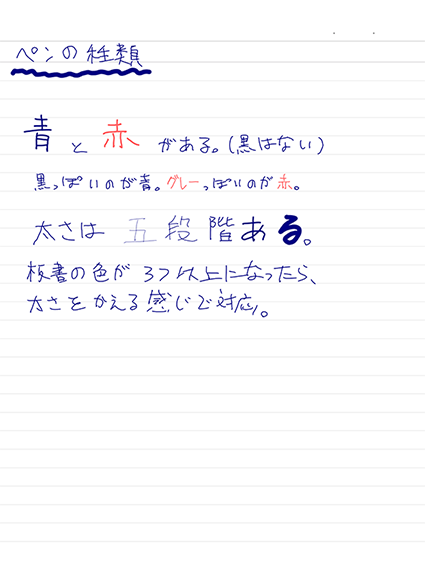 ペンの種類
青と赤がある。(黒はない)
黒っぽいのが青。グレーっぽいのが赤。
太さは五段階ある。
板書の色が3つ以上になったら、
太さをかえる感じで対応。